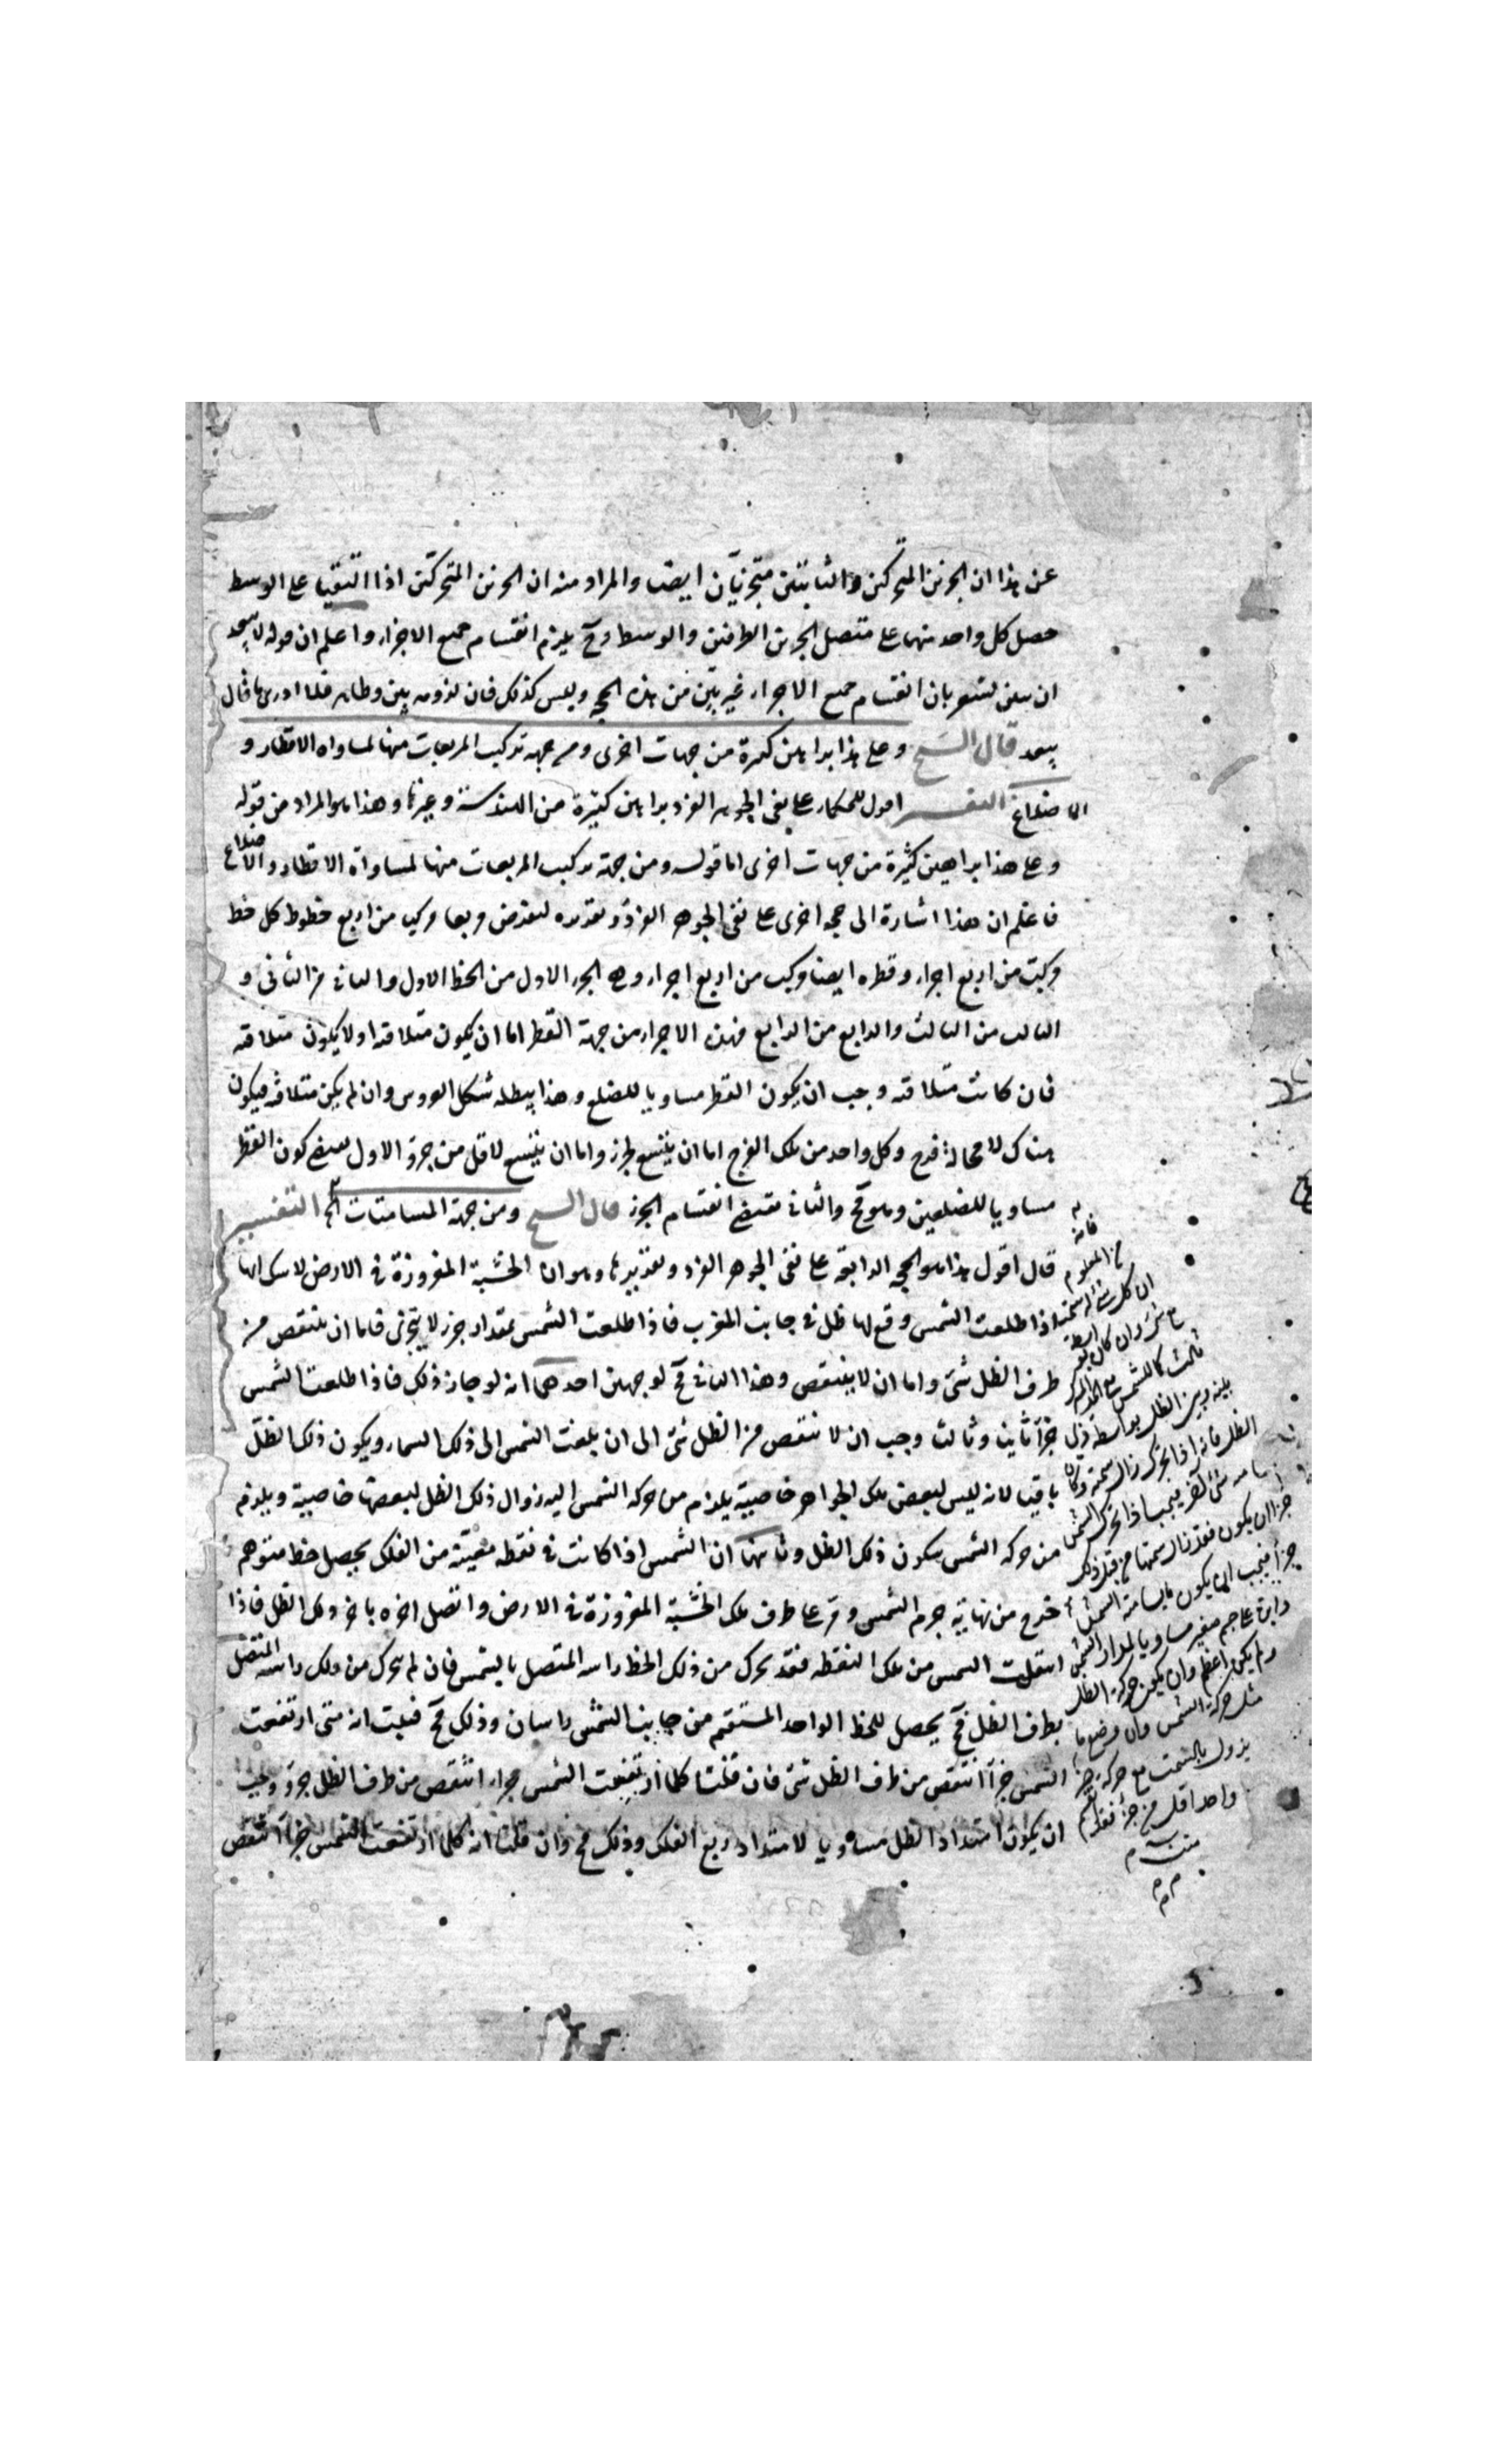 عن هذا ان الجزئين المتحركين والثابتين متجزيان ايضا والمراد منه ان الجزئين المتحركين اذا التقيا على الوسط
حصل كل واحد منهما على متصل الجزئين الطرفين والوسط وح يلزم انقسام جميع الاجزاء واعلم ان قوله لا يبعد
ان يبين يشعر بان انقسام جميع الاجزاء غير بين من هذه الحجه وليس كذلك فان لزومه بين وظاهر فلما ادرى ما قال
يبعد قال الشيخ وعلى هذا براهين كثيرة من جهات اخرى ومن جهه تركيب المربعات منها لمساواه الاقطار و
الاضلاع التفسير اقول للحكماء على نفى الجوهر الفرد براهين كثيرة من الهندسة وغيرها وهذا هو المراد من قوله
وعلى هذا براهين كثيرة من جهات اخرى اما قوله ومن جهة تركيب المربعات منها لمساواة الاقطار والاضلاع
فاعلم ان هذا اشارة الى حجه اخرى على نفى الجوهر الفرد وتقديره لنفرض مربعا ركب من اربع خطوط كل خط
ركبت من اربع اجزاء وقطره ايضا ركب من اربع اجزاء وهى الجزء الاول من الخط الاول والثانى من الثانى و
الثالث من الثالث والرابع من الرابع فهذه الاجزاء من جهة القطر اما ان يكون متلاقيه او لا يكون متلاقيه
فان كانت متلاقيه وجب ان يكون القطر مساويا للضلع وهذا يبطله شكل العروس وان لم يكن متلاقيه فيكون
هناك لا محالة فرج وكل واحد من تلك الفرج اما ان يتسع لجزء واما ان يتسع لاقل من جزء والاول يقتضى كون القطر
مساويا للضلعين وهو مح والثانى يقتضى انقسام الجزء قال الشيخ ومن جهة المسامتات الخ التفسير
قال اقول هذا هو الحجه الرابعه على نفى الجوهر الفرد وتقديرها وهو ان الخشبة المغروزة فى الارض لا شك انها
اذا طلعت الشمس وقع لها ظل فى جانب المغرب فاذا طلعت الشمس بمقدار جزء لا يتجزى فاما ان ينتقص من
طرف الظل شئ واما ان لا ينتقص وهذا الثانى مح لوجهين احدهما انه لو جاز ذلك فاذا طلعت الشمس
جزأ ثانيا وثالثا وجب ان لا ينتقص من الظل شئ الى ان بلغت الشمس الى ذلك السماء ويكون ذلك الظل
باقيا لانه ليس لبعض تلك الجواهر خاصية يلزم من حركة الشمس اليه زوال ذلك الظل لبعضها خاصية ويلزم
من حركة الشمس سكون ذلك الظل وثانيهما ان الشمس اذا كانت فى نقطه معينة من الفلك يحصل خط متوهم
خرج من نهاية جرم الشمس ومر على طرف تلك الخشبة المغروزة فى الارض واتصل اخره باخر ذلك الظل فاذا
انتقلت الشمس من تلك النقطه فقد تحرك من ذلك الخط راسه المتصل بالشمس فان لم يتحرك من ذلك راسه المتصل
بطرف الظل فح يحصل للخط الواحد المستقيم من جانب الشمس راسان وذلك مح فثبت انه متى ارتفعت
الشمس جزأ انتقص من طرف الظل شئ فان قلت كلما ارتفعت الشمس جزء انتقص من طرف الظل جزء وجب
ان يكون امتداد الظل مساويا لامتداد ربع الفلك وذلك مح وان قلت انه كلما ارتفعت الشمس جزأ انتقص
فانه
من المعلوم
ان كل شئ له سمت
مع شئ وان كان بواسطة
ثالث كالشمس مع
بينه وبين الظل بواسطة
الظل فانه اذا تحرك زال سمته وكان
مسامته شئ آخر فيجب اذا تحرك الشمس
جزأ ان يكون قد زال سمتها
جزأ فيجب ان يكون ما يسامته الشمس
مساويا لمدار الشمس
ولم يكن اعظم وان يكون حركة الظل
مثل حركة الشمس وان وضع ما
يزول بالسمت مع حركة جزء
واحد اقل من جزء فقد انقسم